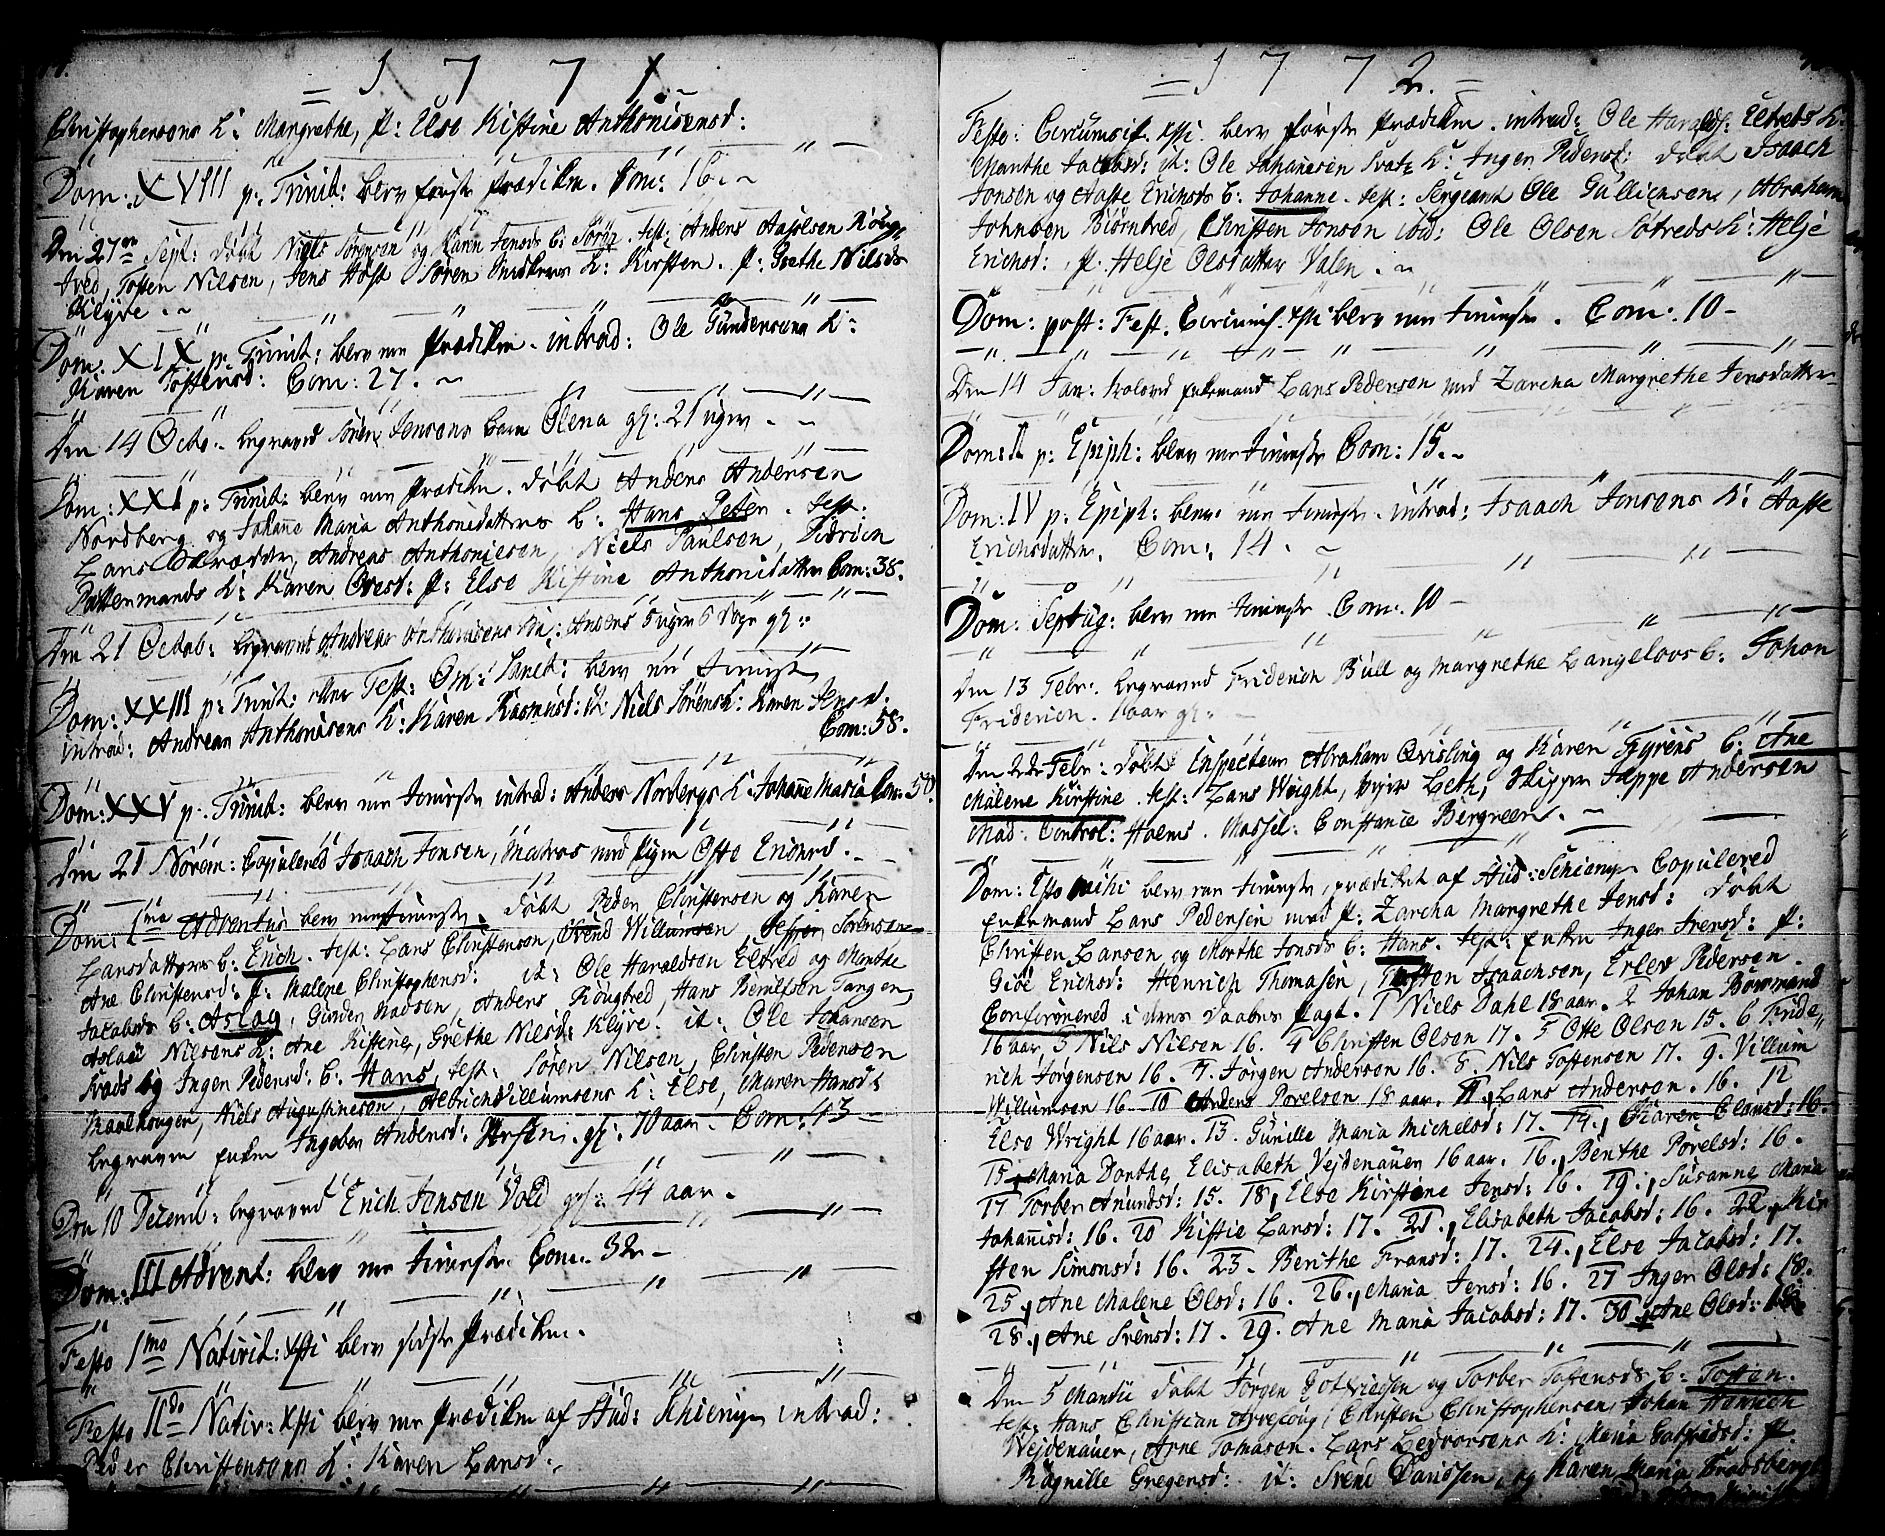 = 1 7 7 1. ~
Christophersens K: Margrethe, P: Else Kistine Anthonisensd:
Dom: XVIII p: Trinit: blev første Prædiken. Com: 16. ~
Den 27de Sept: døbt Niels Sørensen og Karen Jensds B: Sørøn. test: Anders Aaselsen Rønge,
tved, Tosten Nilsen, Jens Høst Søren K: Kirsten. P: Grethe Nilsds
Klyve. ~
Dom: XIX p: Trinit: blev en Prædiken. introd: Ole Gundersens K:
Karen Tostensd: Com: 27. ~
Den 14 Octo: begravd Søren Jensens barn Olena gl: 21 uger. ~
Dom: XXI p: Trinit: blev en Prædiken. døbt Anders Andersen
Nordberg og Johanne Maria Anthonidatters B: Hans Peter. test:
Lars, Andreas Anthonisen, Niels Paulsen, Didrich
Pottermands K: Karen Overd: P: Else Kistine Anthonidatter Com: 38.
Den 21 Octob: begravet Andreas Anthonisens B: 5 uger 6 Dage gl:
Dom: XXIII p: Trinit: eller Fest: Om: Sanct: blev en tieniste
introd: Andreas Anthonisens K: Karen Rasmusd: it: Niels Sørens K: Karen Jensd.
Com: 58.
Dom: XXV p: Trinit: blev en tieniste introd: Anders Norbergs K: Johanne Maria Com: 50.
Den 21 Novem: Copulered Isaach Jonsen, Matros med pigen Oste Erichsd. ~
Dom: 1ma Adventus blev en tieniste. døbt Peder Christensen og Karen
Larsdatters B: Erich. test: Lars Christensen, Svend Willumsen, Jesper Sørensen
Ane Christensd: P: Malene Christophersd: it: Ole Haraldsen Eltved og Marthe
Jacobsds B: Aslag, Gunder Madsen, Anders Röngtved, Hans Bentsen Tangen,
Aslach Nilsens K: Ane Kistine, Grethe Nilsd: Klyve. it: Ole Johansen
Svads og Inger Pedersd: B: Hans, test: Søren Nilsen, Christen Pedersen
Maalkongen, Niels Augustinesen, Albrich Villumsens K: Else, Maren Hansd:
begraven Enken Ingebor Andersd: gl: 70 aar. Com: 43 ~
Den 10 Decemb: begravnd Erich Jensen Vold gl: 44 aar.
Dom: III Advent: blev en tieniste. Com: 32 ~
Festo 1mo Nativit: Xsti blev sidste Prædiken.
Festo IIdo Nativ: Xsti blev en Prædiken af Stud: Schieng introd:
Peder Christensens K: Karen Larsd.
= 1 7 7 2. =
Festo: Circumsis: Xsti blev første Prædiken. introd: Ole Haraldss: Eltveds K:
Marthe Jacobsd: it: Ole Johannesen Svatz K: Inger Pedersd: døbt Isaach
Jonsen og Aaste Erichsds B: Johanne. test: Sergeant Ole Gullichsen, Abraham
Johnsen Biørntved, Christen Jonsen ibid: Ole Olsen Søtveds K: Helje
Erichsd: P: Helje Olsdatter Valen. ~
Dom: post: Fest. Circumcis. Xsti blev en tieniste. Com: 10 ~
Den 14 Jan: trolovd Enkemand Lars Pedersen med Zarcha Margrethe Jensdatter
Dom: II p: Epiph: blev en tieniste Com: 15. ~
Dom: IV p: Epiph: blev en tieniste. introd: Isaach Jonsens K: Aaste
Erichsdatter. Com: 14. ~
Dom: Septug: blev en tieniste. Com: 10 ~
Den 13 Febr: begravd Friderich Bull og Margrethe Langeloos B: Johan
Friderich. 1 aar gl. ~
Den 22de Febr: døbt Inspecteur Abraham Qvisling og Karen Thyrens B: Ane
Malene Kirstine. test: Lars Wright, Leth, Skipper Jeppe Andersen
Mad: Control: Holms. Mossel: Constance Bergreen. ~
Dom: Esto mihi blev en tieniste, prædiket af Stud: Schieng Copulered
Enkemand Lars Pedersen med P: Zarcha Margrethe Jensd: døbt
Christen Larsen og Marthe Jonsds B: Hans. test: Enken Inger Svensd: P:
Giöe Erichsd: Henrich Thomasen, Tosten Isaachsen, Erlev Pedersen.
Confirmered i deres Daabes Pagt. 1 Niels Dahl 18 aar. 2 Johan Bowmand
16 aar 3 Nils Nilsen 16. 4 Christen Olsen 17. 5 Otte Olsen 15. 6 Fride,
rich Jørgensen 16. 7. Jørgen Andersen 16. 8. Nils Tostensen 17. 9. Villum
Willumsen 16. 10 Anders Povelsen 18 aar. 11 Lars Andersen. 16. 12
Else Wright 16 aar. 13. Gunille Maria Michelsd: 17. 14. Karen Olansd: 16.
15 Maria Dorthe Elisabeth Vejdenauer 16 aar. 16. Benthe Porelsd: 16.
17 Torber Amundsd: 15. 18 Else Kirstine Jensd: 16. 19. Susanne Maria
Johannisd: 16. 20 Kistie Larsd: 17. 21. Elisabeth Jacobsd: 16. 22 Kir
sten Simonsd: 16. 23. Benthe Fransd: 17. 24. Else Jacobsd: 17.
25 Ane Malene Olsd: 16. 26. Maria Jensd: 16. 27 Inger Olsd: 18.
28. Ane Svensd: 17. 29. Ane Maria Jacobsd: 17. 30 Ane Olsd: 18.
Den 5 Martii døbt Jørgen Gotfriedsen og Torber Tostensds B: Tosten.
test: Hans Christian Arveskug, Christen Christophersen, Johan Henrich
Wejdenauer, Arne Tomasen. Lars Ledvorsens K: Maria Gotfridsd: P.
Ragnille Gregersd: it: Svend Davidsen, og Karen Maria Bradsbergs